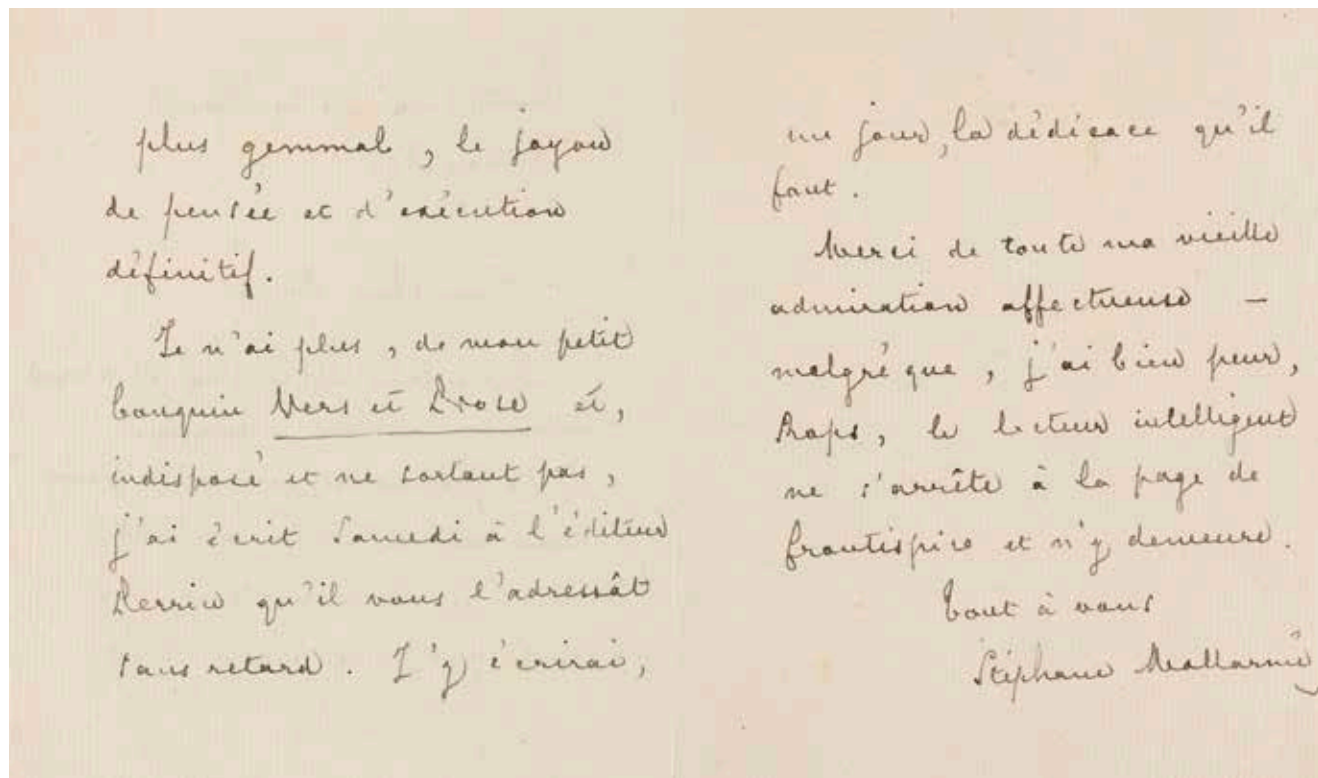 plus gemmal, le joyau
de pensée et d'exécution
définitif.
Je n'ai plus, de mon petit
bouquin Vers et Prose et,
indisposé et ne sortant pas,
j'ai écrit Samedi à l'éditeur
Perrin qu'il vous l'adressât
sans retard. J'y écrirai,
un jour, la dédicace qu'il
faut.
Merci de toute ma vieille
admiration affectueuse —
malgré que, j'ai bien peur,
Rops, le lecteur intelligent
ne s'arrête à la page de
frontispice et n'y demeure.
Tout à vous
Stéphane Mallarmé